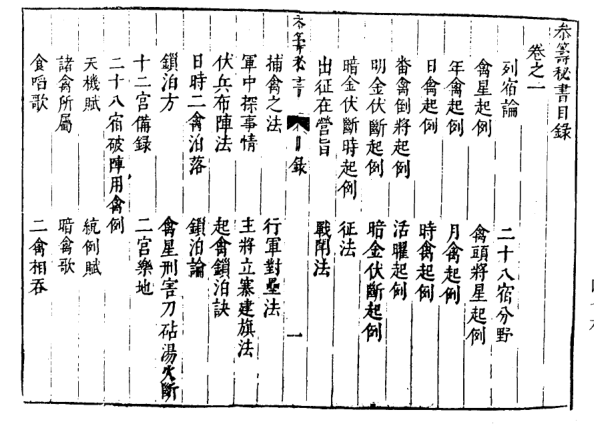 參籌秘書目錄
卷之一
列宿論　二十八宿分野
禽星起例　禽頭將星起例
年禽起例　月禽起例
日禽起例　時禽起例
畨禽倒將起例　活曜起例
明金伏斷起例　暗金伏斷起例
暗金伏斷時起例　征法
出征在營旨　戰鬪法
參籌秘書　目錄　一
捕禽之法　行軍對壘法
軍中探事情　主將立寨建旗法
伏兵布陣法　起禽鎖泊訣
日時二禽泊落　鎖泊論
鎖泊方　禽星刑害刀砧湯火斷
十二宮備錄　二宮樂地
二十八宿破陣用禽例
天機賦　統例賦
諸禽所屬　暗禽歌
食啗歌　二禽相吞